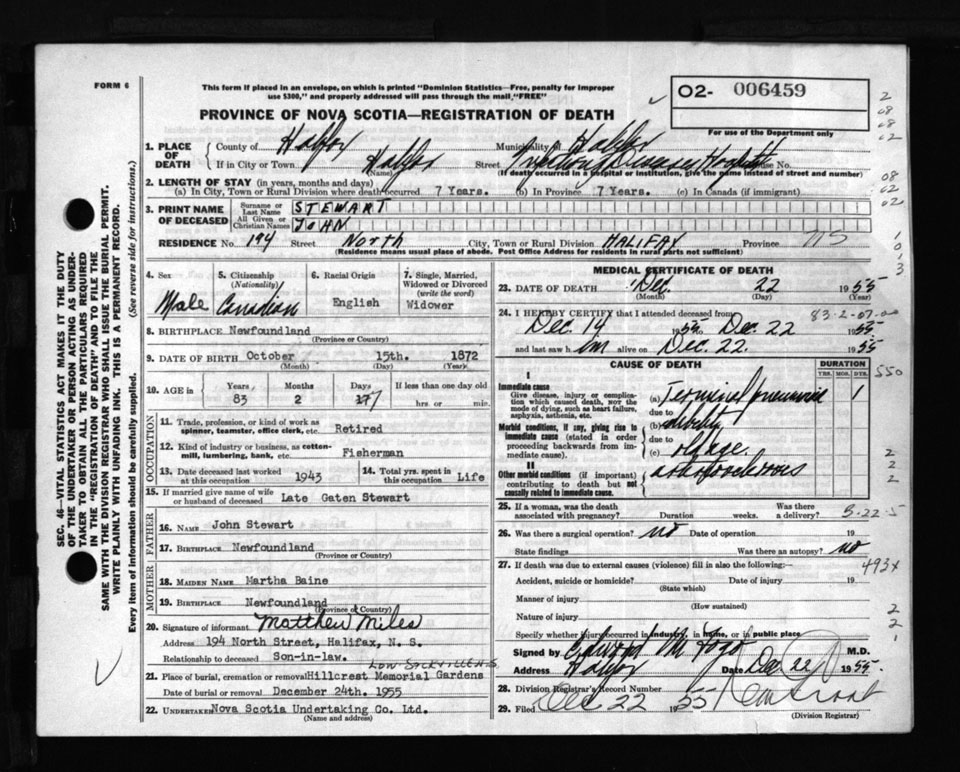 FORM 6
This form if placed in an envelope, on which is printed "Dominion Statistics—Free, penalty for improper
use $300," and properly addressed will pass through the mail, "FREE"
PROVINCE OF NOVA SCOTIA—REGISTRATION OF DEATH
02- 006459
For use of the Department only
1. PLACE OF DEATH
County of Halifax Municipality of Halifax
If in City or Town Halifax (Name) Street House No.
(If death occurred in a hospital or institution, give the name instead of street and number)
2. LENGTH OF STAY (in years, months and days)
(a) In City, Town or Rural Division where death occurred 7 Years. (b) In Province 7 Years. (c) In Canada (if immigrant)
3. PRINT NAME OF DECEASED
Surname or Last Name STEWART
All Given or Christian Names JOHN
RESIDENCE No. 194 Street North City, Town or Rural Division HALIFAX Province NS
(Residence means usual place of abode. Post Office Address for residents in rural parts not sufficient)
4. Sex Male
5. Citizenship (Nationality) Canadian
6. Racial Origin English
7. Single, Married, Widowed or Divorced (write the word) Widower
8. BIRTHPLACE Newfoundland
(Province or Country)
9. DATE OF BIRTH October 15th. 1872
(Month) (Day) (Year)
10. AGE in Years 83 Months 2 Days If less than one day old hrs. or min.
OCCUPATION
11. Trade, profession, or kind of work as spinner, teamster, office clerk, etc. Retired
12. Kind of industry or business, as cotton-mill, lumbering, bank, etc. Fisherman
13. Date deceased last worked at this occupation 1943
14. Total yrs. spent in this occupation Life
15. If married give name of wife or husband of deceased Late Gaten Stewart
FATHER
16. NAME John Stewart
17. BIRTHPLACE Newfoundland
(Province or Country)
MOTHER
18. MAIDEN NAME Martha Baine
19. BIRTHPLACE Newfoundland
(Province or Country)
20. Signature of informant Matthew Miles
Address 194 North Street, Halifax, N. S.
Relationship to deceased Son-in-law.
21. Place of burial, cremation or removal Hillcrest Memorial Gardens
Date of burial or removal December 24th. 1955
22. UNDERTAKER Nova Scotia Undertaking Co. Ltd.
(Name and address)
MEDICAL CERTIFICATE OF DEATH
23. DATE OF DEATH Dec. 22 1955
(Month) (Day) (Year)
24. I HEREBY CERTIFY that I attended deceased from 83-2-07-00
Dec. 14 1955 to Dec. 22 1955
and last saw him alive on Dec. 22. 1955
CAUSE OF DEATH
DURATION
YRS. MOS. DYS.
I
Immediate cause
Give disease, injury or complication which caused death, not the mode of dying, such as heart failure, asphyxia, asthenia, etc.
(a) Terminal pneumonia 1
due to
Morbid conditions, if any, giving rise to immediate cause (stated in order proceeding backwards from immediate cause).
(b) debility
due to
(c) old age.
II
Other morbid conditions (if important) contributing to death but not causally related to immediate cause.
arteriosclerosis
25. If a woman, was the death associated with pregnancy? Duration weeks. Was there a delivery?
26. Was there a surgical operation? no Date of operation 19
State findings Was there an autopsy? no
27. If death was due to external causes (violence) fill in also the following:—
Accident, suicide or homicide? Date of injury 19
(State which)
Manner of injury
(How sustained)
Nature of injury
Specify whether injury occurred in industry, in home, or in public place
Signed by Edward M. Fogo M.D.
Address Halifax Date Dec 22 1955.
28. Division Registrar's Record Number
29. Filed Dec 22 1955
(Division Registrar)
550
493X
SEC. 46—VITAL STATISTICS ACT MAKES IT THE DUTY
OF THE UNDERTAKER OR PERSON ACTING AS UNDER-
TAKER TO OBTAIN ALL THE PARTICULARS REQUIRED
IN THE "REGISTRATION OF DEATH" AND TO FILE THE
SAME WITH THE DIVISION REGISTRAR WHO SHALL ISSUE THE BURIAL PERMIT.
WRITE PLAINLY WITH UNFADING INK. THIS IS A PERMANENT RECORD.
Every item of information should be carefully supplied. (See reverse side for instructions.)